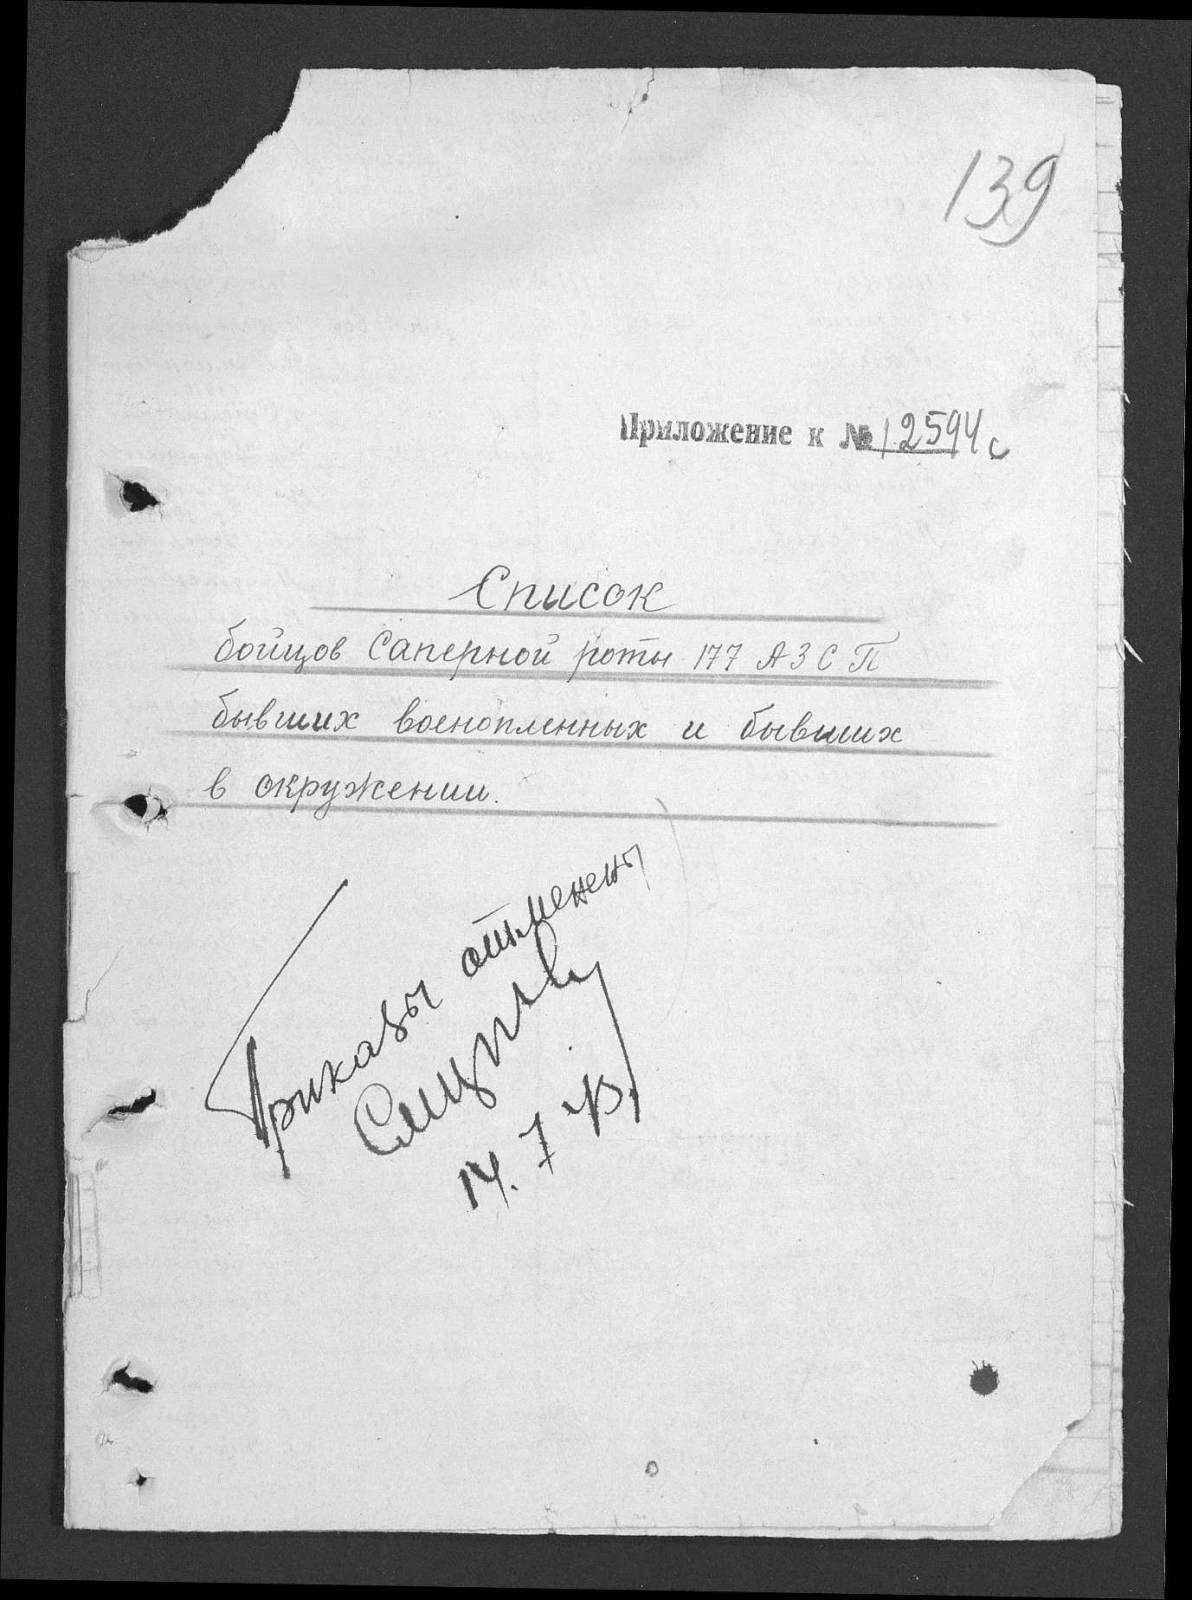 139
Приложение к № 12594с
Список
бойцов Саперной роты 177 АЗСП
бывших военопленных и бывших
в окружении.
Приказы отменены
14.7